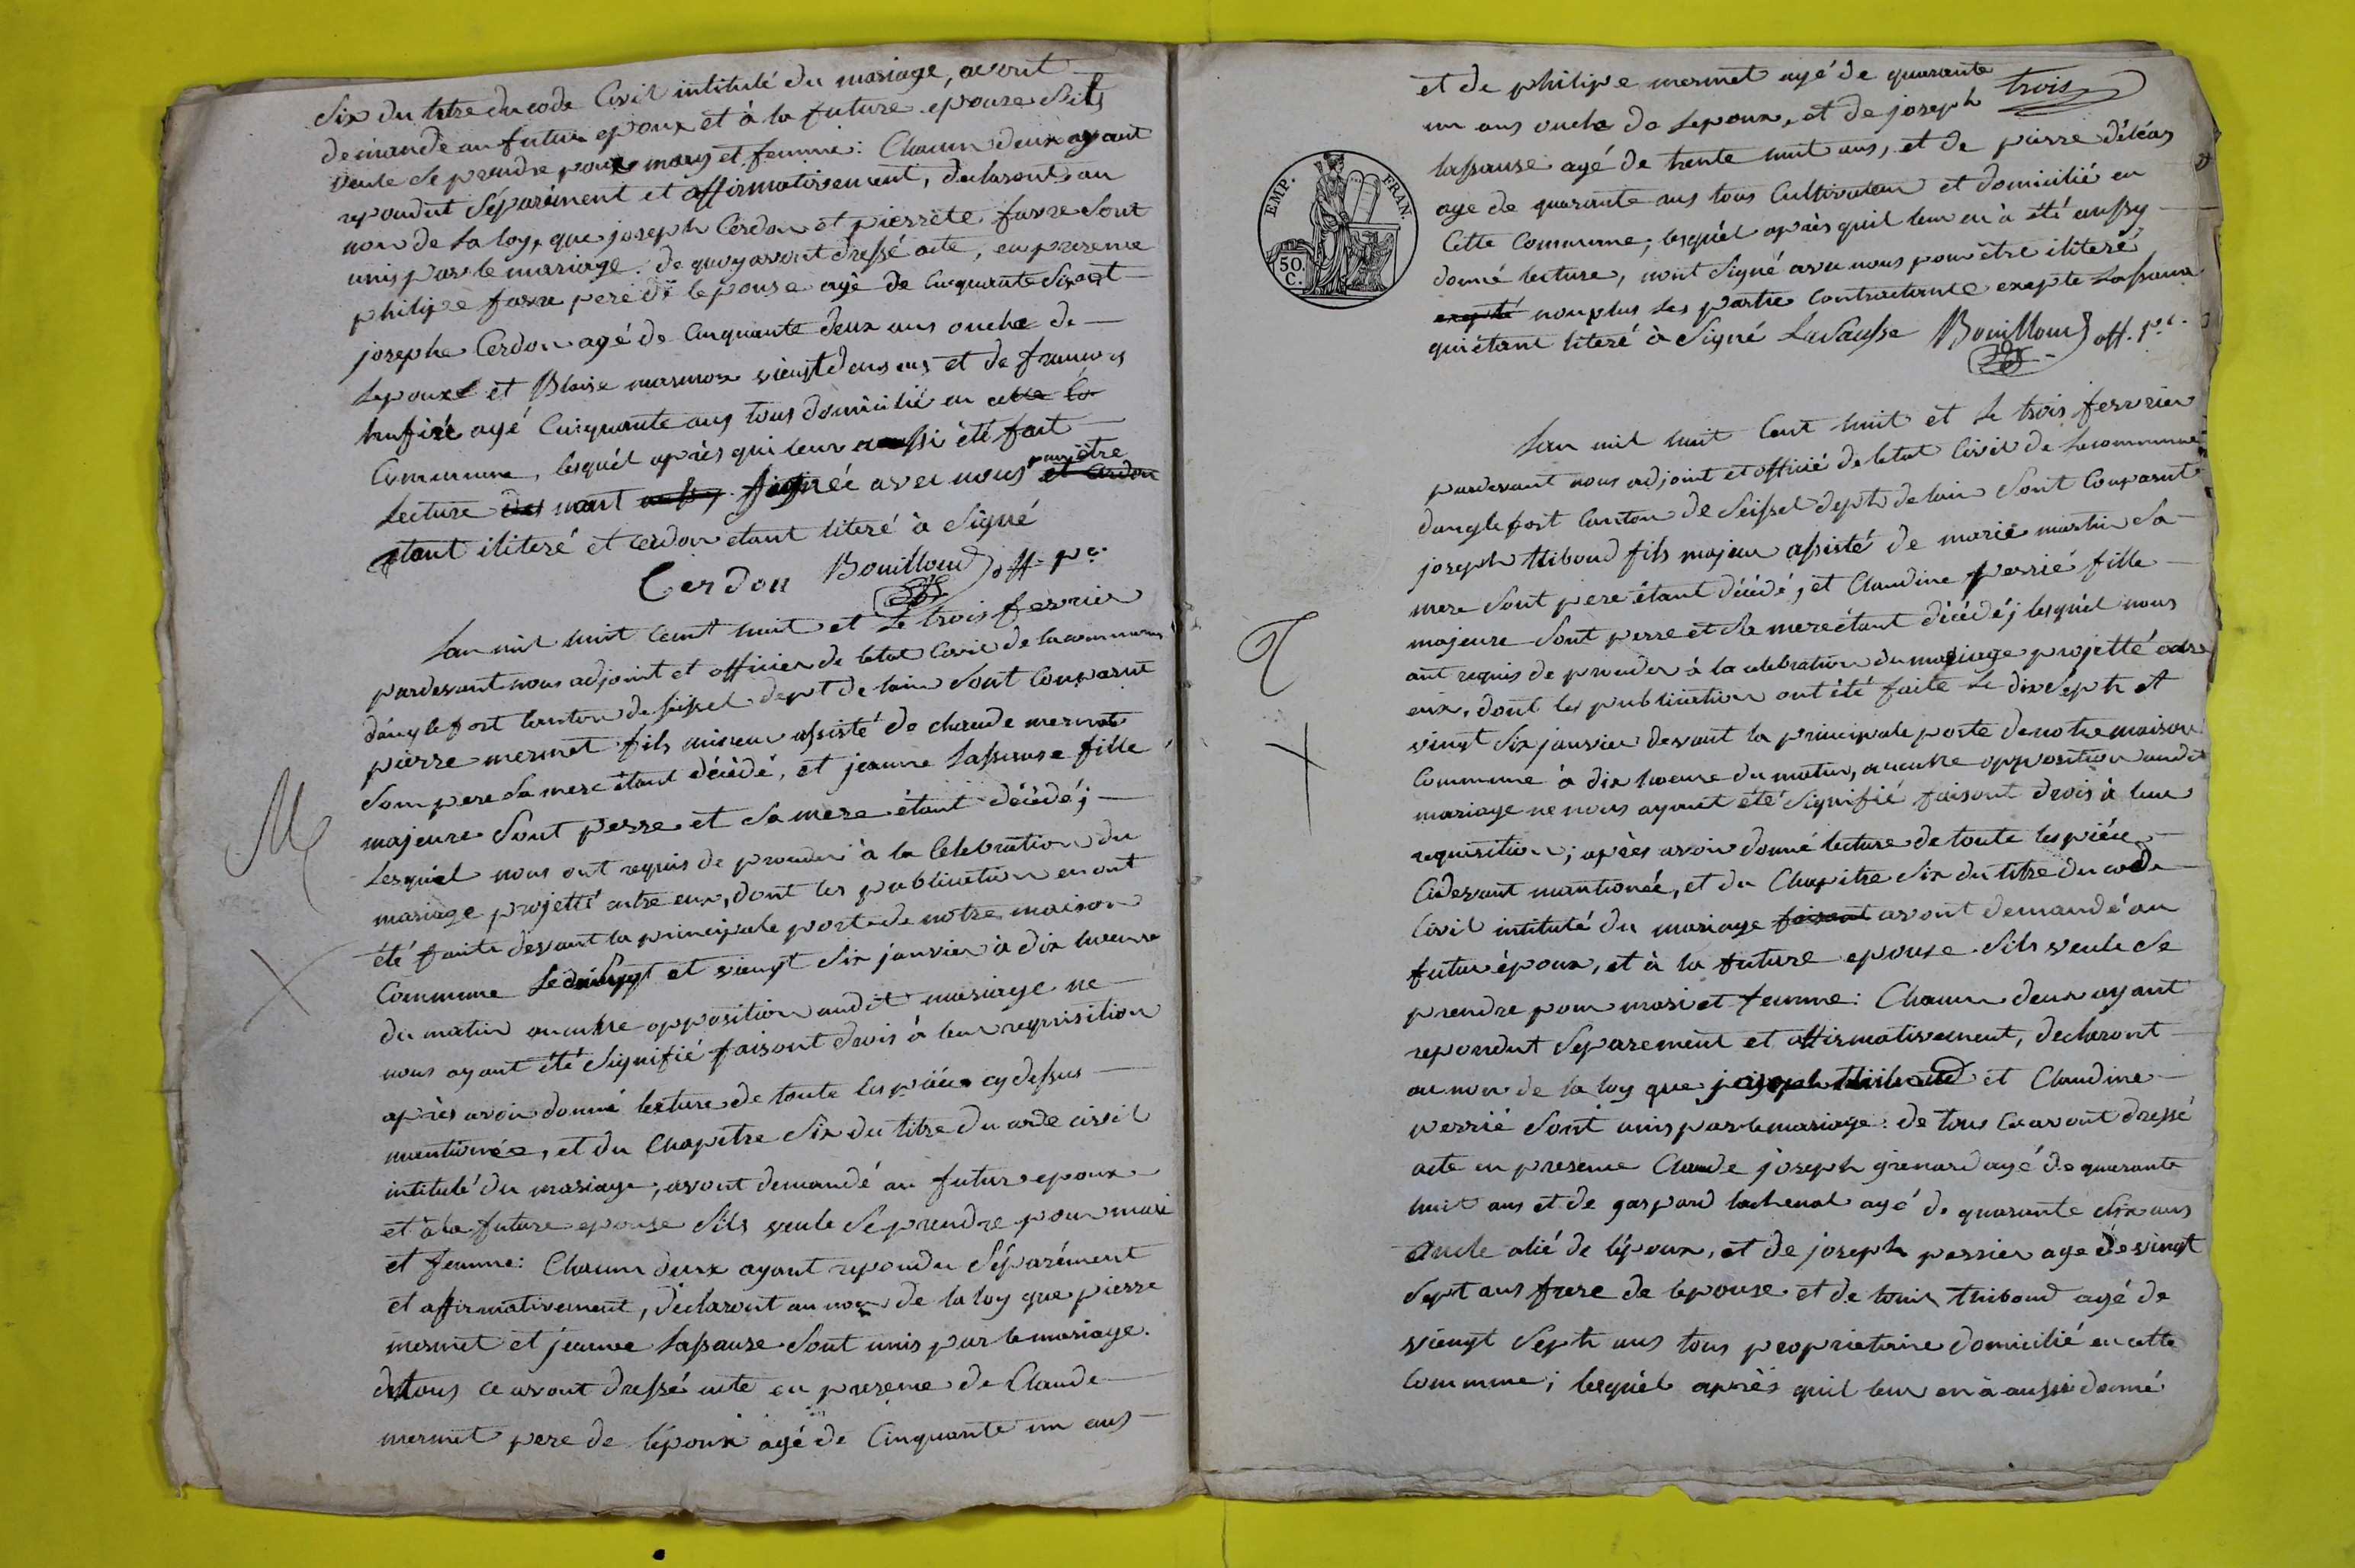 Six du titre du code Civil intitulé du mariage, avont
demandé au futur epoux et à la future epouse Sils
veule Se prendre pour mary et femme: Chacun deux ayant
repondut Séparément et affirmativement, declaront au
nom de la loy, que joseph Cerdon et pierrete favre Sont
unis par le mariage. de quoy avont dressé acte, en presence
philipe favre pere de lepouse agé de Cinquante Six et
josephe Cerdon agé de Cinquante deux ans oncle de
Lepoux et Blaise marmoux vient deux ans et de francois
agé Cinquante ans tous domicilié en cette Co
Commune, lesquel après qui leur aussi été fait
Lecture des nont aussy signée avec nous pour être et Cerdon
étant iliteré et cerdon etant literé à Signé
Cerdon Bouilloud off. pc.
Lan mil huit cent huit et Le trois fevrier
pardevant nous adjoint et officier de letat Civil de la commune
danglefort Canton de Seissel dept de lain Sont Comparut
pierre mermet fils mineur assisté de claude mermet
Son pere Sa mere étant décédé, et jeanne Lassause fille
majeure Sont perre et Sa mere étant décédé;
Lesquel nous ont requis de proceder à la Celebration du
mariage projetté entre eux, dont les publication en ont
été faite devant la principale porte de notre maison
Commune Le dix Sept et vingt Six janvier à dix heure
du matin aucune opposition audit mariage ne
nous ayant été Signifié faisont drois à leur requisition
après avoir donné lecture de toute les pièce cy dessus
mentionée, et du Chapitre Six du titre du code civil
intitulé du mariage, avont demandé au futur epoux
et à la future epouse Sils veule Se prendre pour mari
et femme: Chacun deux ayant repondu Séparément
et affirmativement, déclaront au nom de la loy que pierre
mermet et jeanne Lassause Sont unis par le mariage.
de tous ce avont dressé acte en presence de Claude
mermet pere de lépoux agé de Cinquante un ans
M
X
et de philipe mermet agé de quarante
trois
un ans oncle de Lepoux, et de joseph
lassause agé de trente huit ans, et de pierre déléas
age de quarante ans tous Cultivateur et domicilié en
Cette Commune; lesquél après quil leur en à été aussy
donné lecture, nont Signé avec nous pour être iliteré
exepté non plus les partie Contractante exepte Lassause
qui étant literé à Signé LaSausse Bouilloud off. pc.
EMP. FRAN.
50. C.
Lan mil huit Cent huit et Le trois fevrier
pardevant nous adjoint et officié de letat Civil de La commune
danglefort Canton de Seissel depts de lain Sont Comparut
joseph thiboud fils majeur assisté de marie martin Sa
mere Sont pere étant décédé, et Claudine perrié fille
majeure Sont perre et Sa mere étant décédé; lesquél nous
ont requis de proceder à la celebration du mariage projetté entre
eux, dont les publication ont été faite Le dix Septh et
vingt Six janvier devant la principale porte de notre maison
Commune à dix heure du matin, aucune opposition audit
mariage ne nous ayant été Signifié faisont drois à leur
requisition; après avoir donné lecture de toute les piéce
Cidevant mantionée, et du Chapitre Six du titre du code
Civil intitulé du mariage faisont avont demandé au
futur époux, et à la future epouse Sils veule Se
prendre pour mari et femme: Chacun deux ayant
repondut Separement et affirmativement, declaront
au non de la loy que joseph thiboud et Claudine
perrié Sont unis par le mariage: de tous Ce avont dressé
acte en presence Claude joseph grenard agé de quarante
huit ans et de gaspard lachenal agé de quarante Six ans
oncle alié de lépoux, et de joseph perrier age de vingt
Sept ans frere de lepouse et de louis thiboud agé de
vingt Septh ans tous proprietaire domicilié en cette
Commune; lesquél après quil leur en à aussi donné
T
X